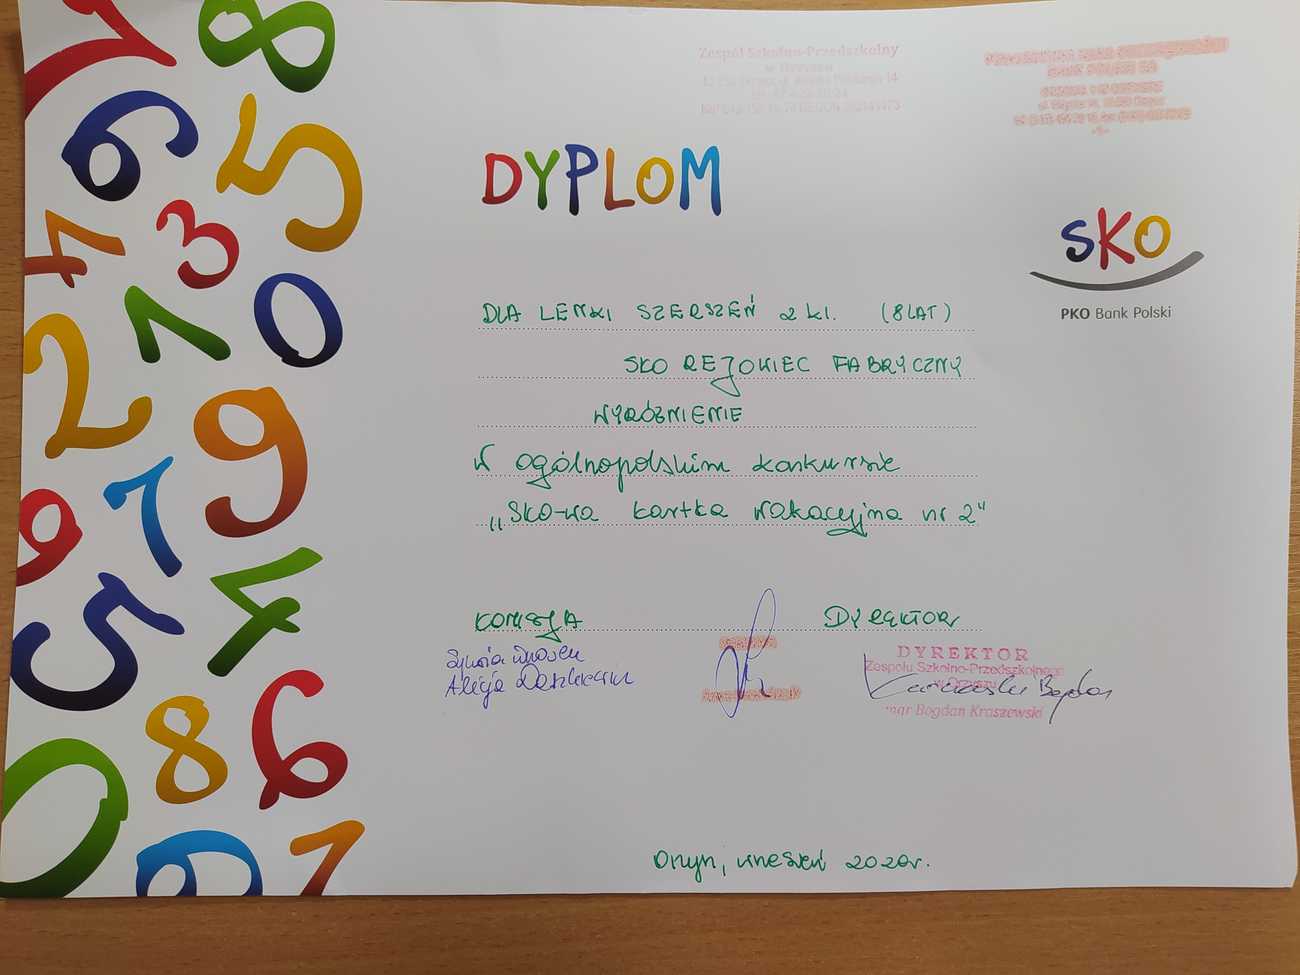 Zespół Szkolno-Przedszkolny
w Orzyszu
DYPLOM
SKO
PKO Bank Polski
DLA LENKI SZERSZEŃ 2 kl. (8 LAT)
SKO REJOWIEC FABRYCZNY
WYRÓŻNIENIE
w ogólnopolskim konkursie
„SKO-wa kartka wakacyjna nr 2"
KOMISJA
DYREKTOR
Alicja
DYREKTOR
Zespołu Szkolno-Przedszkolnego
w Orzyszu
mgr Bogdan Kraszewski
Orzysz, wrzesień 2020r.